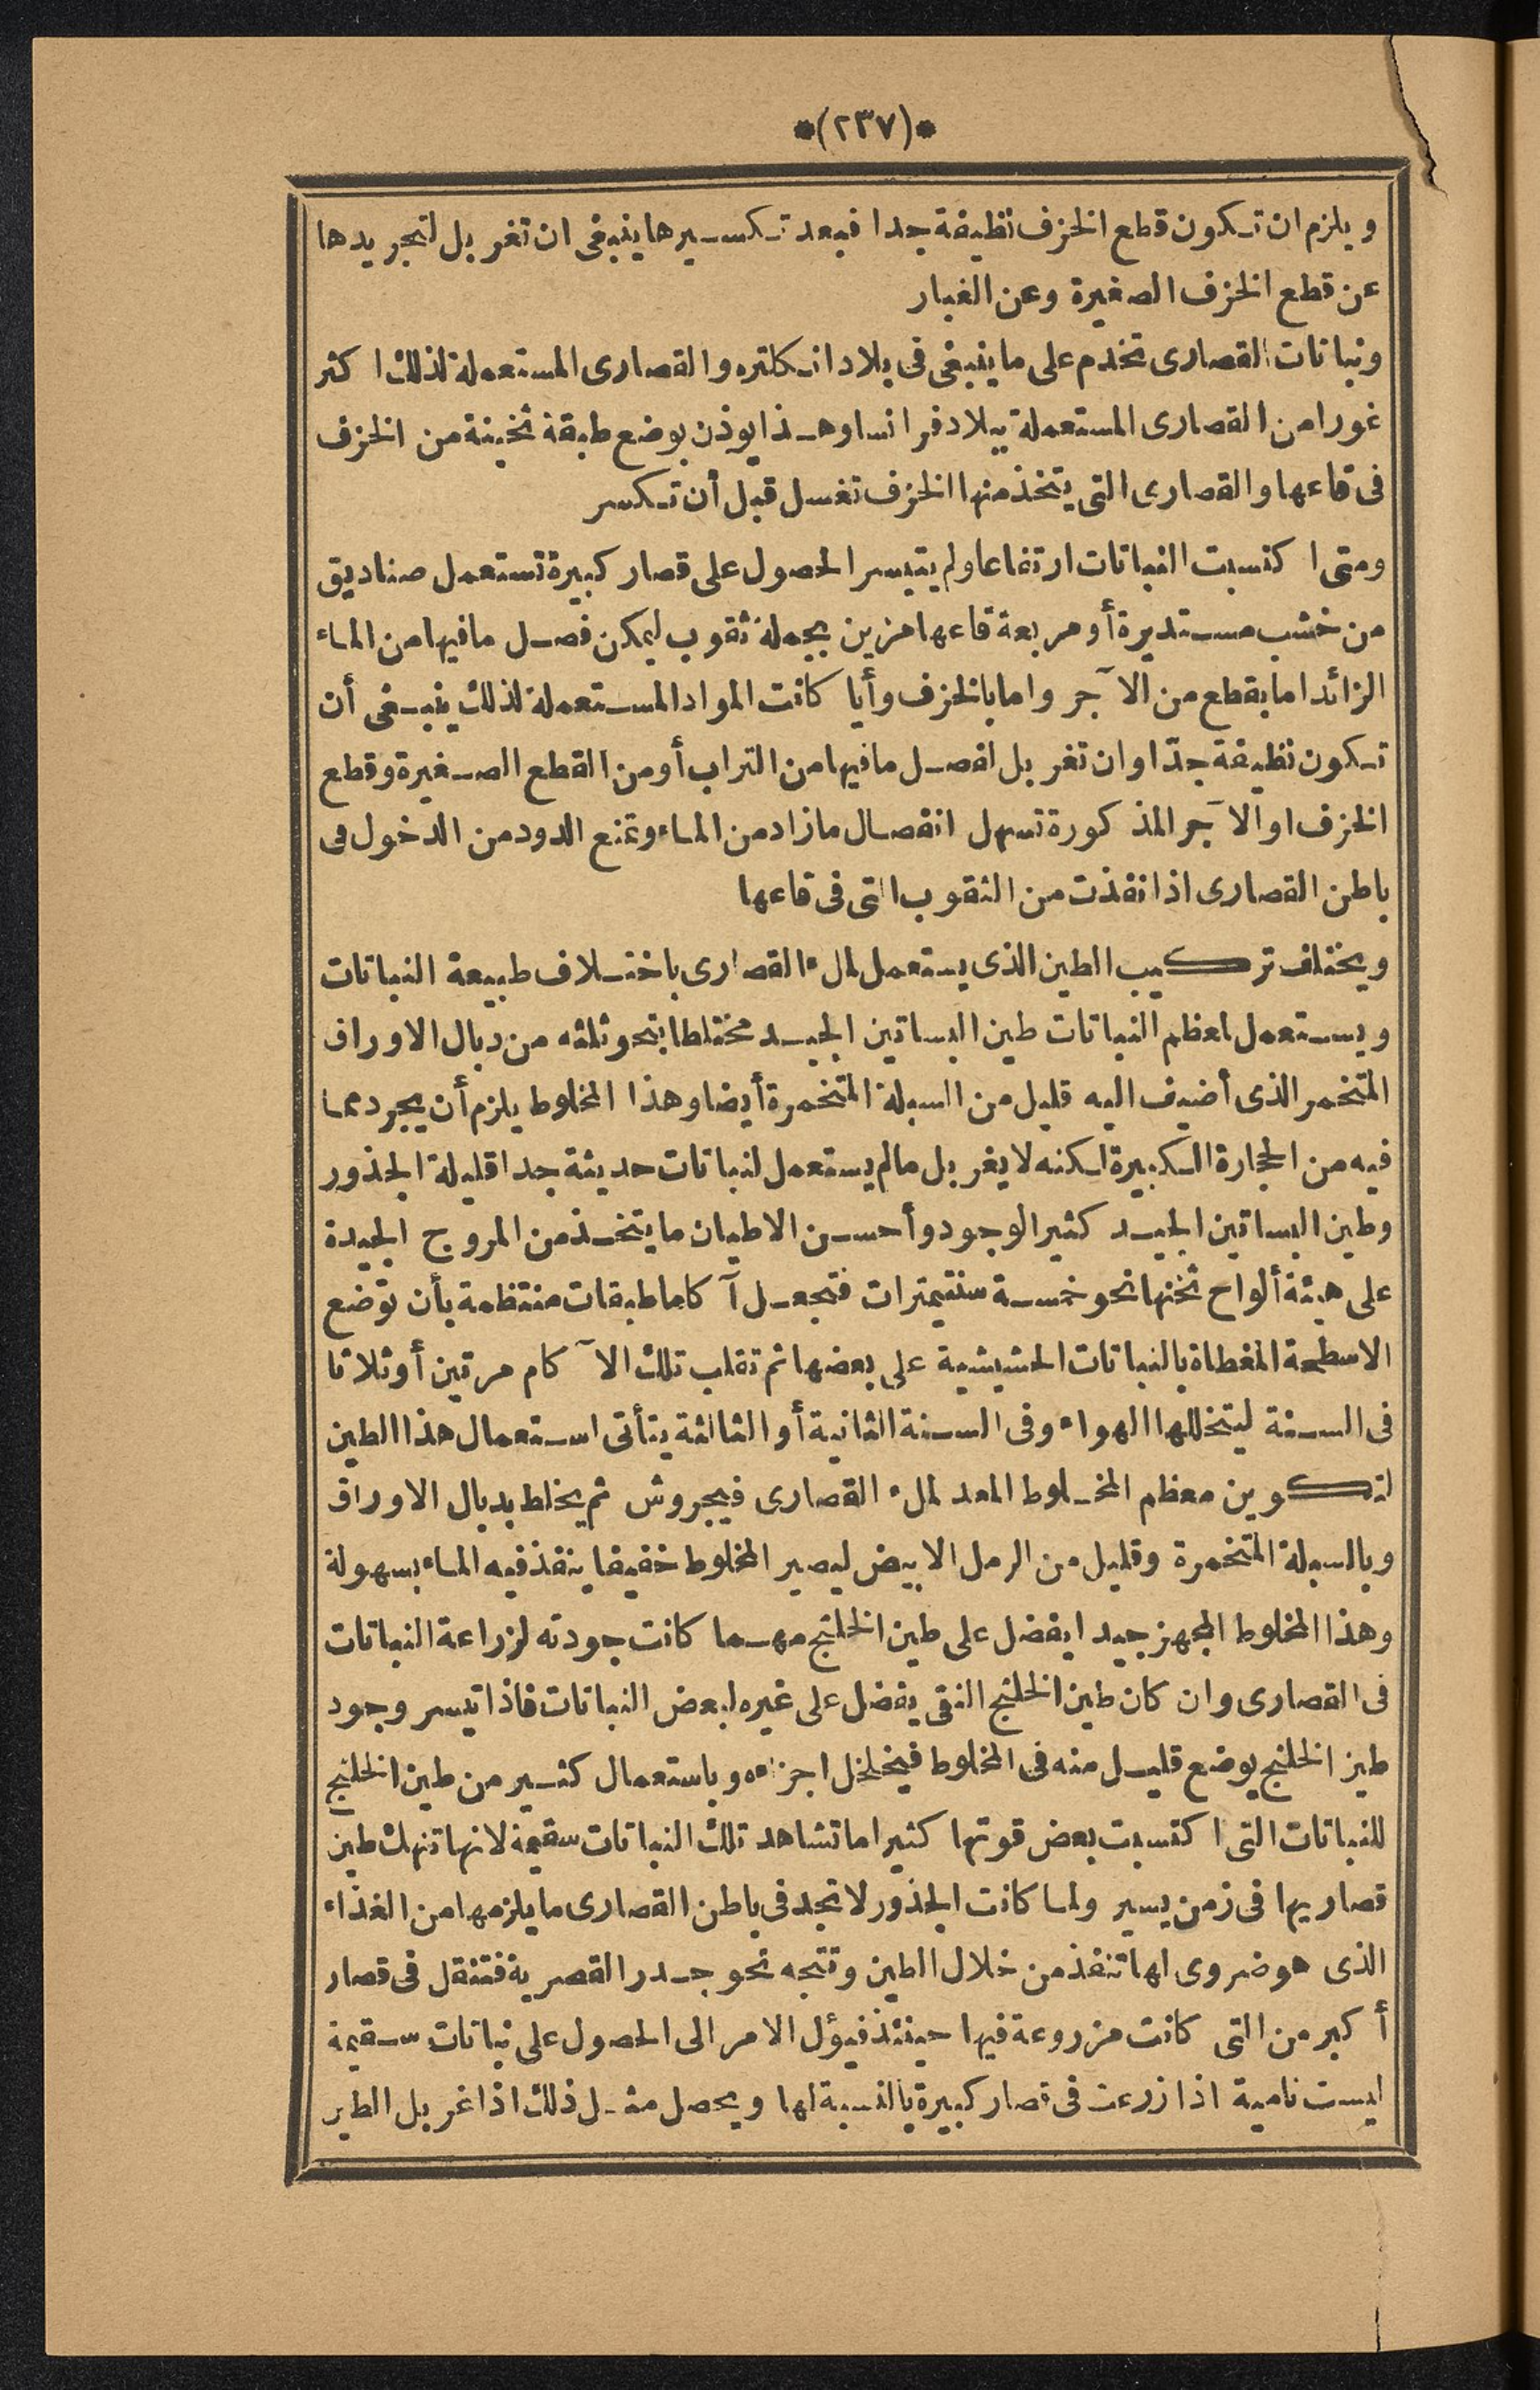 *(٢٣٧)*
ويلزم ان تكون قطع الخزف نظيفة جدا فبعد تكسيرها ينبغى ان تغربل لتجريدها
عن قطع الخزف الصغيرة وعن الغبار
ونباتات القصارى تخدم على ما ينبغى فى بلاد انكلتره والقصارى المستعملة لذلك اكثر
غورا من القصارى المستعملة ببلاد فرانسا وهذا يوذن بوضع طبقة ثخينة من الخزف
فى قاعها والقصارى التى يتخذ منها الخزف تغسل قبل أن تكسر
ومتى اكتسبت النباتات ارتفاعا ولم يتيسر الحصول على قصار كبيرة تستعمل صناديق
من خشب مستديرة أو مربعة قاعها مزين بجملة ثقوب ليمكن فصل ما فيها من الماء
الزائد اما بقطع من الآجر واما بالخزف وأيا كانت المواد المستعملة لذلك ينبغى أن
تكون نظيفة جدّا وان تغربل لفصل ما فيها من التراب أو من القطع الصغيرة وقطع
الخزف او الآجر المذكورة تسهل انفصال ما زاد من الماء وتمنع الدود من الدخول فى
باطن القصارى اذا نفذت من الثقوب التى فى قاعها
ويختلف تركيب الطين الذى يستعمل لملء القصارى باختلاف طبيعة النباتات
ويستعمل لمعظم النباتات طين البساتين الجيد مختلطا بنحو ثلثه من دبال الاوراق
المتخمر الذى أضيف اليه قليل من السبلة المتخمرة أيضا وهذا المخلوط يلزم أن يجرد مما
فيه من الحجارة الكبيرة لكنه لا يغربل ما لم يستعمل لنباتات حديثة جدا قليلة الجذور
وطين البساتين الجيد كثير الوجود وأحسن الاطيان ما يتخذ من المروج الجيدة
على هيئة ألواح ثخنها نحو خمسة سنتيمترات فتجعل آكاما طبقات منتظمة بأن توضع
الاسطحة المغطاة بالنباتات الحشيشية على بعضها ثم تقلب تلك الآكام مرتين أو ثلاثا
فى السنة ليتخللها الهواء وفى السنة الثانية أو الثالثة يتأتى استعمال هذا الطين
لتكوين معظم المخلوط المعد لملء القصارى فيجروش ثم يخلط بدبال الاوراق
وبالسبلة المتخمرة وقليل من الرمل الابيض ليصير المخلوط خفيفا ينفذ فيه الماء بسهولة
وهذا المخلوط المجهز جيدا يفضل على طين الخلنج مهما كانت جودته لزراعة النباتات
فى القصارى وان كان طين الخلنج النقى يفضل على غيره لبعض النباتات فاذا تيسر وجود
طين الخلنج يوضع قليل منه فى المخلوط فيخلخل اجزاءه وباستعمال كثير من طين الخلنج
للنباتات التى اكتسبت بعض قوتها كثيرا ما تشاهد تلك النباتات سقيمة لانها تنهك طين
قصاريها فى زمن يسير ولما كانت الجذور لا تجد فى باطن القصارى ما يلزمها من الغذاء
الذى هو ضروى لها تنفذ من خلال الطين وتتجه نحو جدر القصرية فتنقل فى قصار
أكبر من التى كانت مزروعة فيها حينئذ فيؤل الامر الى الحصول على نباتات سقيمة
ليست نامية اذا زرعت فى قصار كبيرة بالنسبة لها ويحصل مثل ذلك اذا غربل الطين